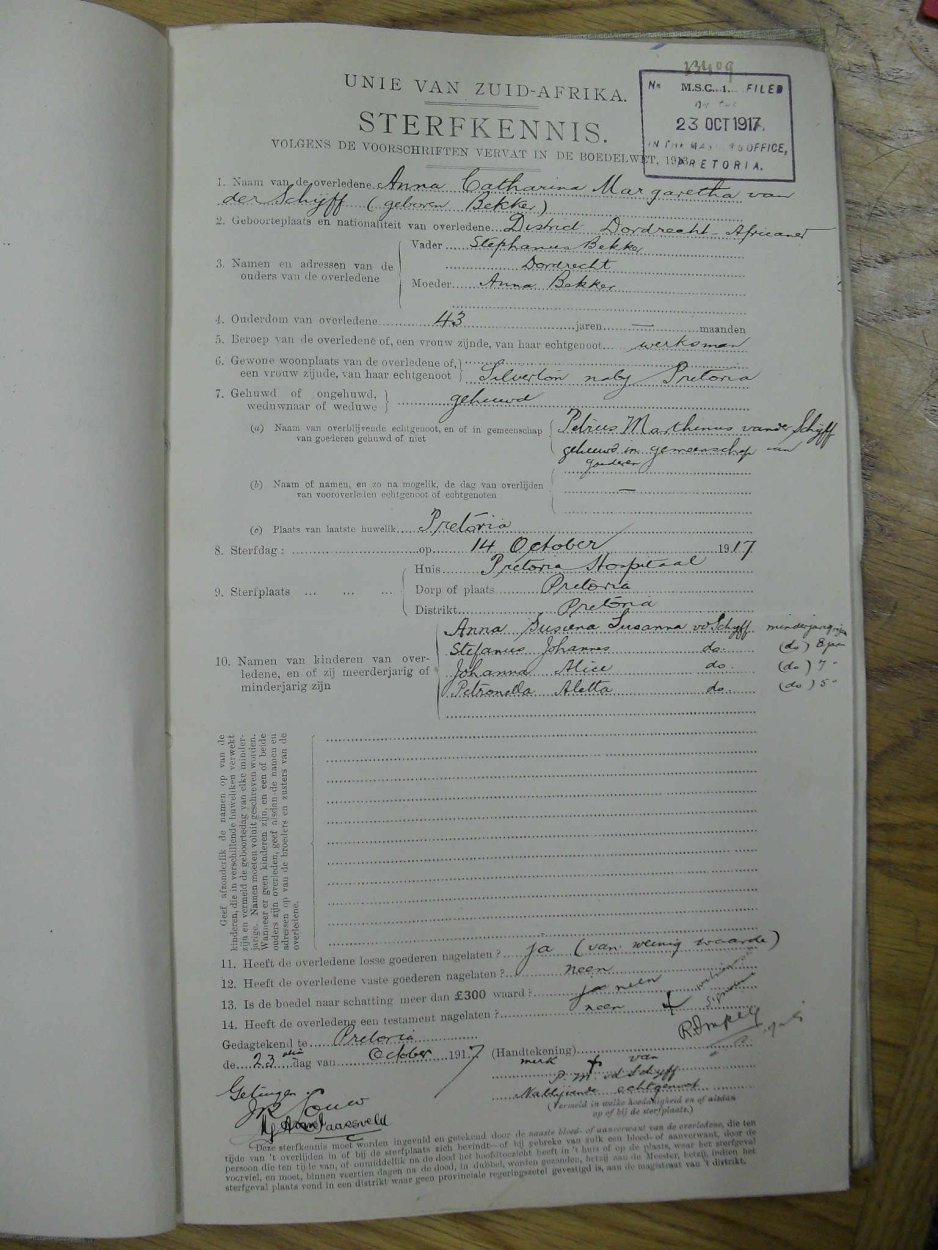 13409
No M.S.C. 1. FILED
ON THE
23 OCT 1917
IN THE MASTER'S OFFICE,
PRETORIA.
UNIE VAN ZUID-AFRIKA.
STERFKENNIS.
VOLGENS DE VOORSCHRIFTEN VERVAT IN DE BOEDELWET, 1913.
1. Naam van de overledene Anna Catharina Margaretha van
der Schijff (geboren Bekker)
2. Geboorteplaats en nationaliteit van overledene District Dordrecht - Africaner
3. Namen en adressen van de ouders van de overledene
Vader Stephanus Bekker
Dordrecht
Moeder Anna Bekker
4. Ouderdom van overledene 43 jaren — maanden
5. Beroep van de overledene of, een vrouw zijnde, van haar echtgenoot werksman
6. Gewone woonplaats van de overledene of,
een vrouw zijnde, van haar echtgenoot Silverton naby Pretoria
7. Gehuwd of ongehuwd,
weduwnaar of weduwe gehuwd
(a) Naam van overblijvende echtgenoot, en of in gemeenschap
van goederen gehuwd of niet
Petrus Marthinus van der Schijff
gehuwd in gemeenschap van
goederen
(b) Naam of namen, en zo na mogelik, de dag van overlijden
van vooroverleden echtgenoot of echtgenoten —
(c) Plaats van laatste huwelik Pretoria
8. Sterfdag: op 14 October 1917
9. Sterfplaats
Huis Pretoria Hospitaal
Dorp of plaats Pretoria
Distrikt Pretoria
10. Namen van kinderen van over-
ledene, en of zij meerderjarig of
minderjarig zijn
Anna Susanna vd Schyff
Stefanus Johannes do. (do) 8 jaar
Johanna Alice do. (do) 7 "
Petronella Aletta do. (do) 5 "
Geef afzonderlik de namen op van de
kinderen, die in verschillende huweliken verwekt
zijn en vermeld de geboortedag van elke minder-
jarige. Namen moeten voluit geschreven worden.
Wanneer er geen kinderen zijn, en een of beide
ouders zijn overleden, geef alsdan de namen en
adressen op van de broeders en zusters van de
overledene.
11. Heeft de overledene losse goederen nagelaten? ja (van weinig waarde)
12. Heeft de overledene vaste goederen nagelaten? neen
13. Is de boedel naar schatting meer dan £300 waard? ja neen
14. Heeft de overledene een testament nagelaten? neen
Gedagtekend te Pretoria
de 23 dag van October 1917
(Handtekening)
merk + van
P. M. vd Schyff
Nablijvende echtgenoot
(Vermeld in welke hoedanigheid en of aldan
op of bij de sterfplaats.)
Getuigen:
JR Louw
Deze sterfkennis moet worden ingevuld en getekend door de naaste bloed- of aanverwant van de overledene, die ten
tijde van 't overlijden in of bij de sterfplaats zich bevindt—of bij gebreke van zulk een bloed- of aanverwant, door de
persoon die ten tijde van, of onmiddellik na de dood het hoofdtoezicht heeft in 't huis of op de plaats, waar het sterfgeval
voorviel, en moet, binnen veertien dagen na de dood, in dubbel, worden gezonden, hetzij aan de Meester, hetzij, indien het
sterfgeval plaats vond in een distrikt waar geen provinciale regeringszetel gevestigd is, aan de magistraat van 't distrikt.